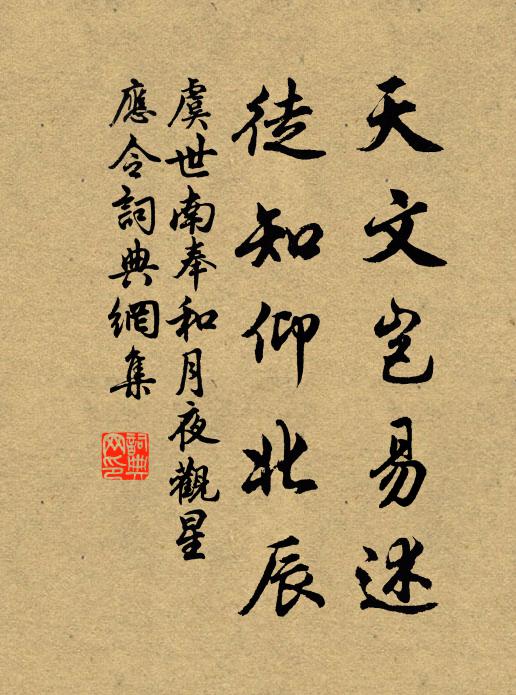 天文豈易述
徒知仰北辰
虞世南奉和月夜觀星
應令詞典網集
詞典
网印